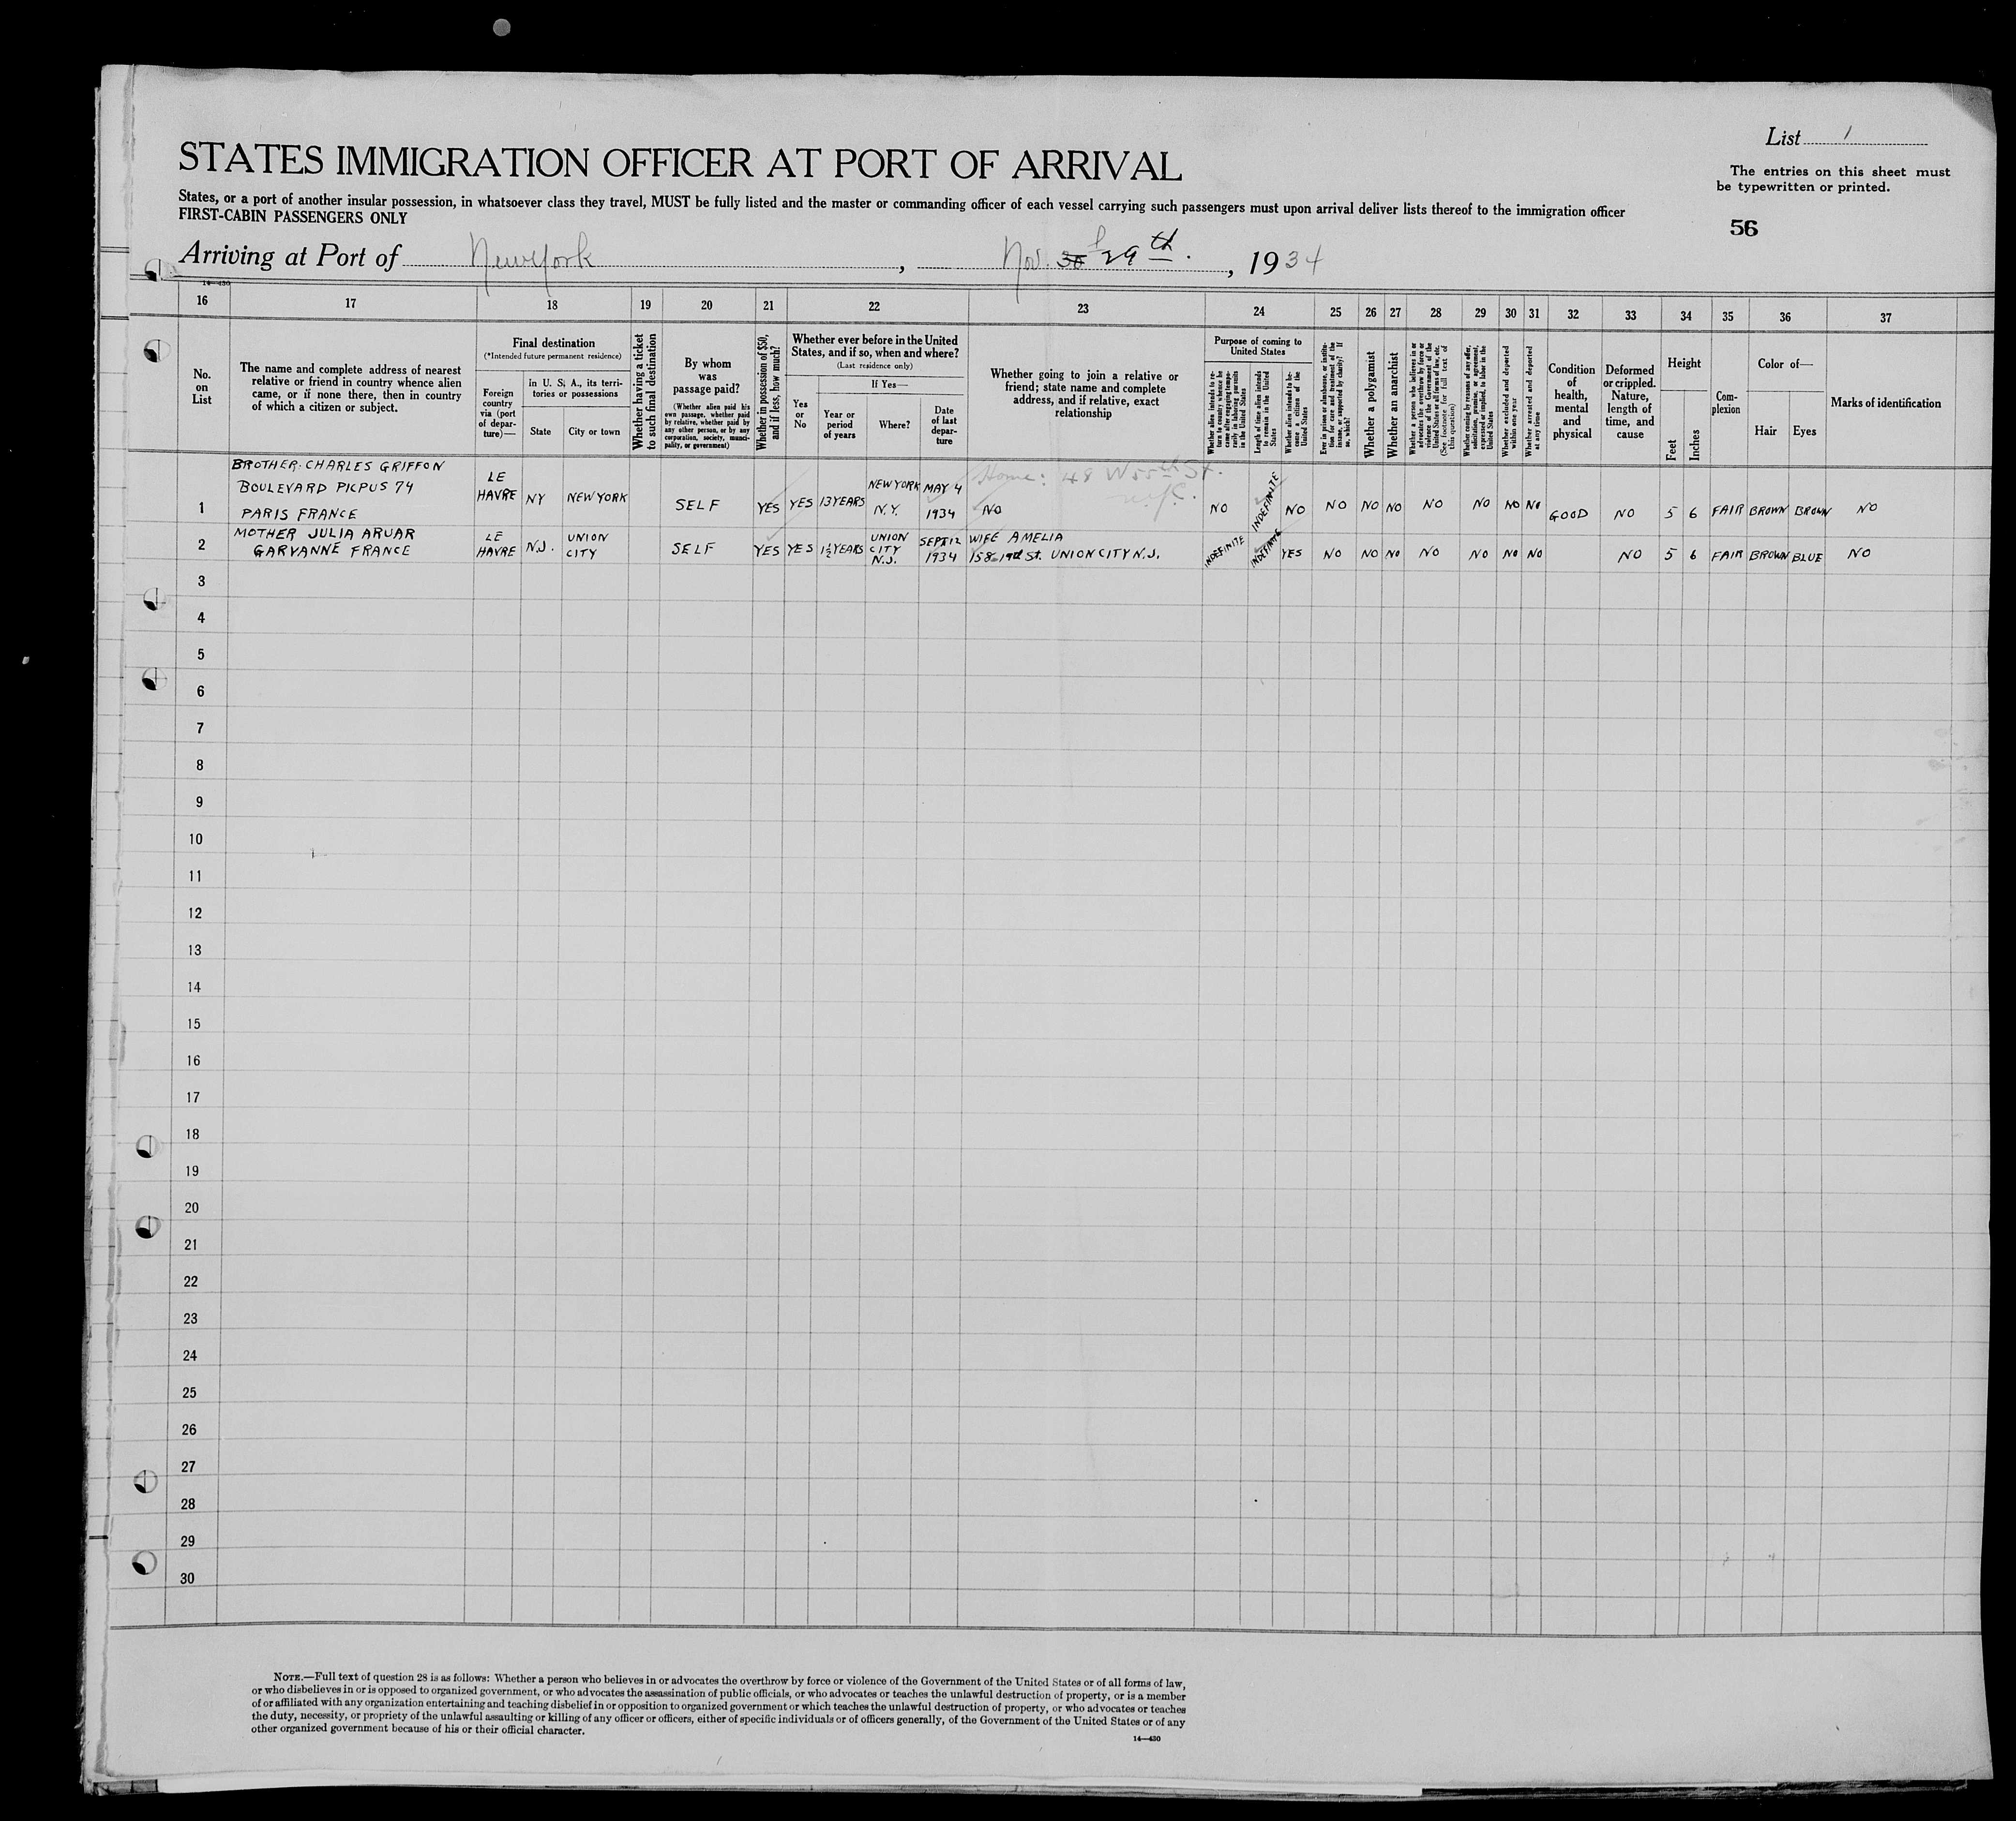 List 1
STATES IMMIGRATION OFFICER AT PORT OF ARRIVAL
The entries on this sheet must
be typewritten or printed.
States, or a port of another insular possession, in whatsoever class they travel, MUST be fully listed and the master or commanding officer of each vessel carrying such passengers must upon arrival deliver lists thereof to the immigration officer
FIRST-CABIN PASSENGERS ONLY
56
Arriving at Port of New York, Nov. 30 29th, 1934
14—430
16 17 18 19 20 21 22 23 24 25 26 27 28 29 30 31 32 33 34 35 36 37
No.
on
List
The name and complete address of nearest
relative or friend in country whence alien
came, or if none there, then in country
of which a citizen or subject.
Final destination
(*Intended future permanent residence)
Foreign
country
via (port
of depar-
ture)—
In U. S. A., its terri-
tories or possessions
State
City or town
Whether having a ticket
to such final destination
By whom
was
passage paid?
(Whether alien paid his
own passage, whether paid
by relative, whether paid by
any other person, or by any
corporation, society, munici-
pality, or government)
Whether in possession of $50,
and if less, how much?
Whether ever before in the United
States, and if so, when and where?
(Last residence only)
Yes
or
No
If Yes—
Year or
period
of years
Where?
Date
of last
depar-
ture
Whether going to join a relative or
friend; state name and complete
address, and if relative, exact
relationship
Purpose of coming to
United States
Whether alien intends to re-
turn to country whence he
came after engaging tempo-
rarily in laboring pursuits
in the United States
Length of time alien intends
to remain in the United
States
Whether alien intends to be-
come a citizen of the
United States
Ever in prison or almshouse, or institu-
tion for care and treatment of the
insane, or supported by charity? If
so, which?
Whether a polygamist
Whether an anarchist
Whether a person who believes in or
advocates the overthrow by force or
violence of the Government of the
United States or all forms of law, etc.
(See footnote for full text of
this question)
Whether coming by reasons of any offer,
solicitation, promise, or agreement,
expressed or implied, to labor in the
United States
Whether excluded and deported
within one year
Whether arrested and deported
at any time
Condition
of
health,
mental
and
physical
Deformed
or crippled.
Nature,
length of
time, and
cause
Height
Feet
Inches
Com-
plexion
Color of—
Hair
Eyes
Marks of identification
BROTHER: CHARLES GRIFFON
BOULEVARD PICPUS 74
PARIS FRANCE
1 LE HAVRE NY NEW YORK SELF YES YES 13 YEARS NEW YORK N.Y. MAY 4 1934 NO
Home: 48 W 55th St.
N.Y.C.
NO INDEFINITE NO NO NO NO NO NO NO NO GOOD NO 5 6 FAIR BROWN BROWN NO
MOTHER JULIA ARUAR
GARYANNE FRANCE
2 LE HAVRE N.J. UNION CITY SELF YES YES 1½ YEARS UNION CITY N.J. SEPT 12 1934 WIFE AMELIA
158-19th St. UNION CITY N.J.
INDEFINITE INDEFINITE YES NO NO NO NO NO NO NO NO 5 6 FAIR BROWN BLUE NO
3
4
5
6
7
8
9
10
11
12
13
14
15
16
17
18
19
20
21
22
23
24
25
26
27
28
29
30
NOTE.—Full text of question 28 is as follows: Whether a person who believes in or advocates the overthrow by force or violence of the Government of the United States or of all forms of law,
or who disbelieves in or is opposed to organized government, or who advocates the assassination of public officials, or who advocates or teaches the unlawful destruction of property, or is a member
of or affiliated with any organization entertaining and teaching disbelief in or opposition to organized government or which teaches the unlawful destruction of property, or who advocates or teaches
the duty, necessity, or propriety of the unlawful assaulting or killing of any officer or officers, either of specific individuals or of officers generally, of the Government of the United States or of any
other organized government because of his or their official character.
14—430